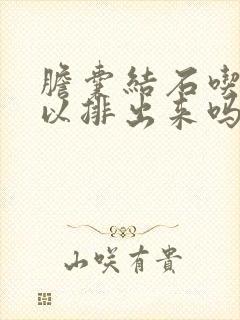 膽囊結石喫
以排出来吗
山咲有貴